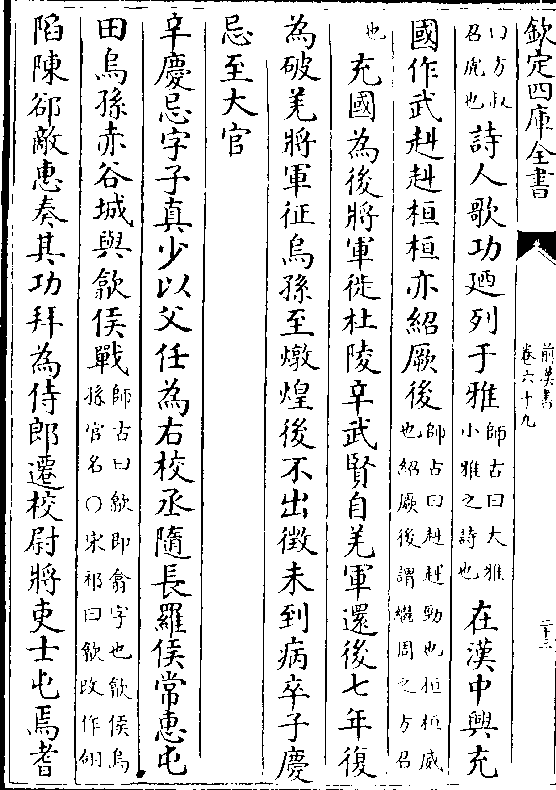 欽定四庫全書
前漢書
卷六十九
二十三
曰方叔
召虎也
詩人歌功廼列于雅
師古曰大雅
小雅之詩也
在漢中興充
國作武赳赳桓桓亦紹厥後
師古曰赳赳勁也桓桓威
也紹厥後謂繼周之方召
也
充國為後將軍徙杜陵辛武賢自羌軍還後七年復
為破羌將軍征烏孫至燉煌後不出徵未到病卒子慶
忌至大官
辛慶忌字子真少以父任為右校丞隨長羅侯常惠屯
田烏孫赤谷城與歙侯戰
師古曰歙即翕字也歙侯烏
孫官名○宋祁曰歙改作翎
陷陳郤敵惠奏其功拜為侍郎遷校尉將吏士屯焉耆